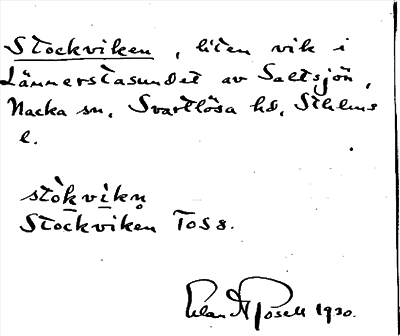 Stockviken, liten vik i
Lännerstasundet av Saltsjön,
Nacka sn, Svartlösa hd, Sthlms
l.
stòkvikn̥
Stockviken TOS 8.
1930.